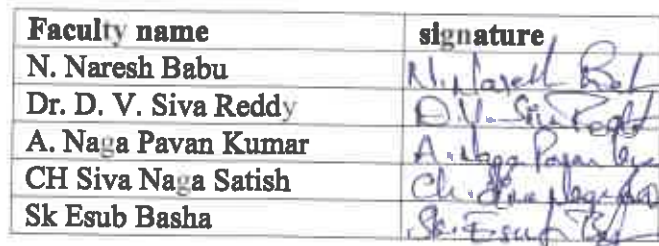 Faculty name signature
N. Naresh Babu N. Naresh Bab
Dr. D. V. Siva Reddy D.V. Siva Reddy
A. Naga Pavan Kumar A. Naga Pavan
CH Siva Naga Satish Ch. Siva Naga
Sk Esub Basha Sk. Esub